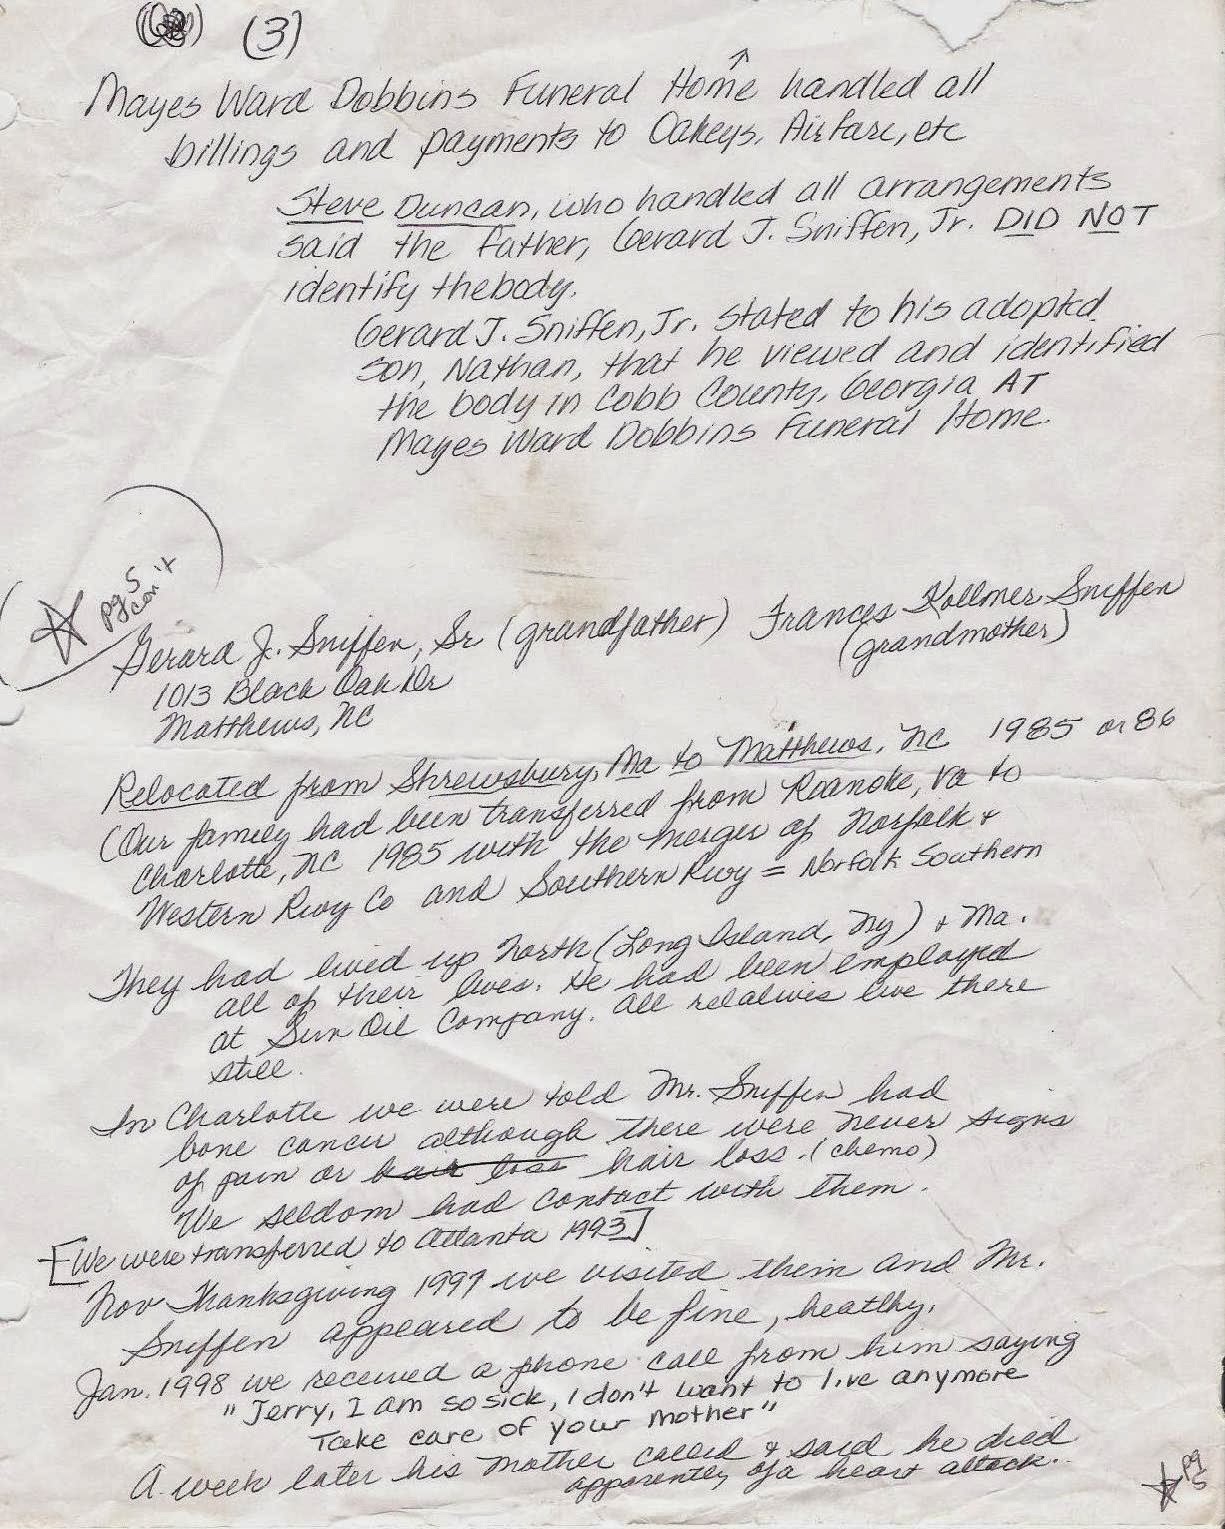 (3)
Mayes Ward Dobbins Funeral Home handled all
billings and payments to Oakeys, Airfare, etc
Steve Duncan, who handled all arrangements
said the father, Gerard J. Sniffen, Jr. DID NOT
identify thebody.
Gerard J. Sniffen, Jr. stated to his adoptd
son, Nathan, that he viewed and identified
the body in Cobb County, Georgia AT
Mayes Ward Dobbins Funeral Home.
pg 5
con't
Gerard J. Sniffen, Sr (grandfather) Frances Kollmer Sniffen
(grandmother)
1013 Black Oak Dr
Matthews, NC
Relocated from Shrewsbury, Ma to Matthews, NC 1985 or 86
(Our family had been transferred from Roanoke, Va to
Charlotte, NC 1985 with the merger of Norfolk +
Western Rwy Co and Southern Rwy = Norfolk Southern
They had lived up North (Long Island, Ny) + Ma.
all of their lives. He had been employed
at Sun Oil Company. All relatives live there
still.
In Charlotte we were told Mr. Sniffen had
bone cancer although there were never signs
of pain or hair loss hair loss. (chemo)
We seldom had contact with them.
[We were transferred to Atlanta 1993]
Nov Thanksgiving 1997 we visited them and Mr.
Sniffen appeared to be fine, heathy.
Jan. 1998 we received a phone call from him saying
"Jerry, I am so sick, I don't want to live anymore
Take care of your mother"
A week later his mother called & said he died
apparently of a heart attack.
pg
5